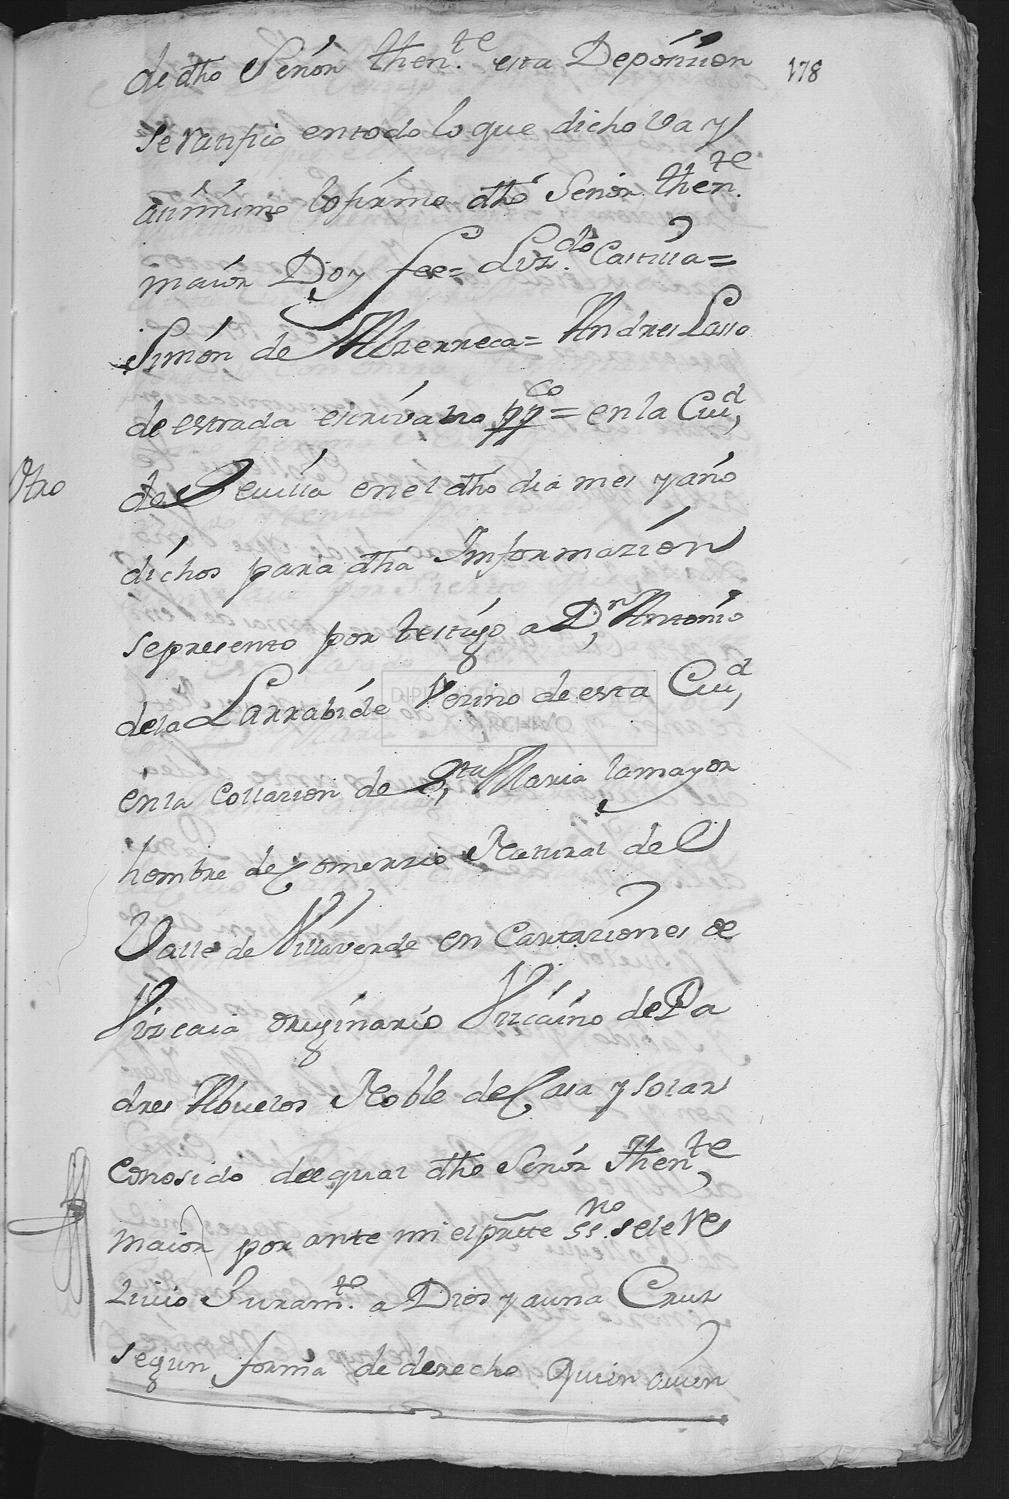 178
de dho Señor then.te esta Deposision
se ratifico entodo lo que dicho Va y
asimismo lo firmo dho Señor then.te
maior Doy fee= Liz.do Castilla=
Simon de Abrerreca= Andres Lasso
de estrada escrivano pp.co = en la Ciud,
Otro
de Sevilla en el dho dia mes y año
dichos para dha Informazion
se presento por testigo a D.n Antonio
de la Larrabide Vezino de esta Ciud,
en la Collazion de S,ta Maria la mayor
hombre de Comerzio Natural del
Valle de Villaverde en Cartaziones de
Vizcaia originario Vizcaino de Pa
dres Abuelos Noble de Casa y solar
Conosido del qual dho Señor Then,te
maior por ante mi el pres.te ss.no se le Res
zivio Juram.to a Dios y a una Cruz
segun forma de derecho Quien avien